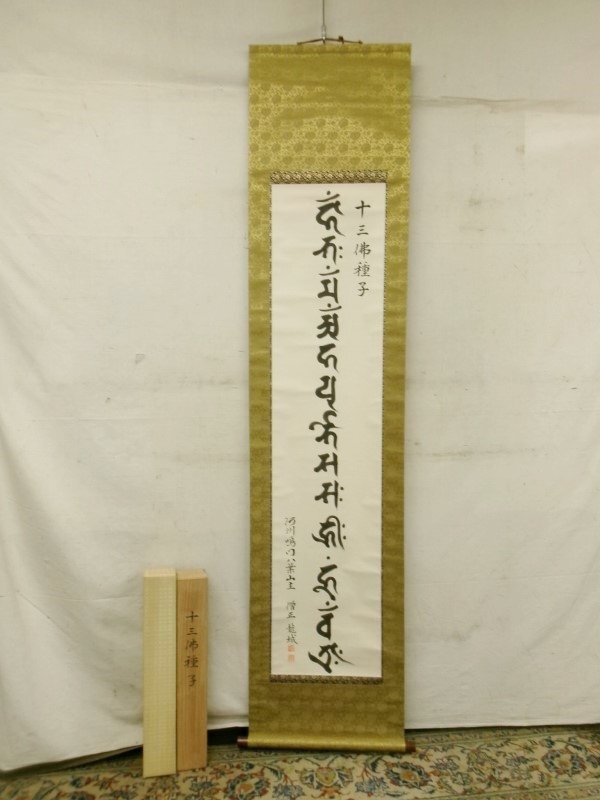 十三佛種子
𑖮𑖯𑖽
𑖥𑖾
𑖦𑖽
𑖀𑖽
𑖮
𑖧𑖲
𑖥𑖹
𑖭
𑖭𑖾
𑖮𑖿𑖨𑖱𑖾
𑖮𑖳𑖽
𑖪𑖽
𑖝𑖿𑖨𑖯𑖾
河州鳴门八葉山主 僧正 龍城
十三佛種子